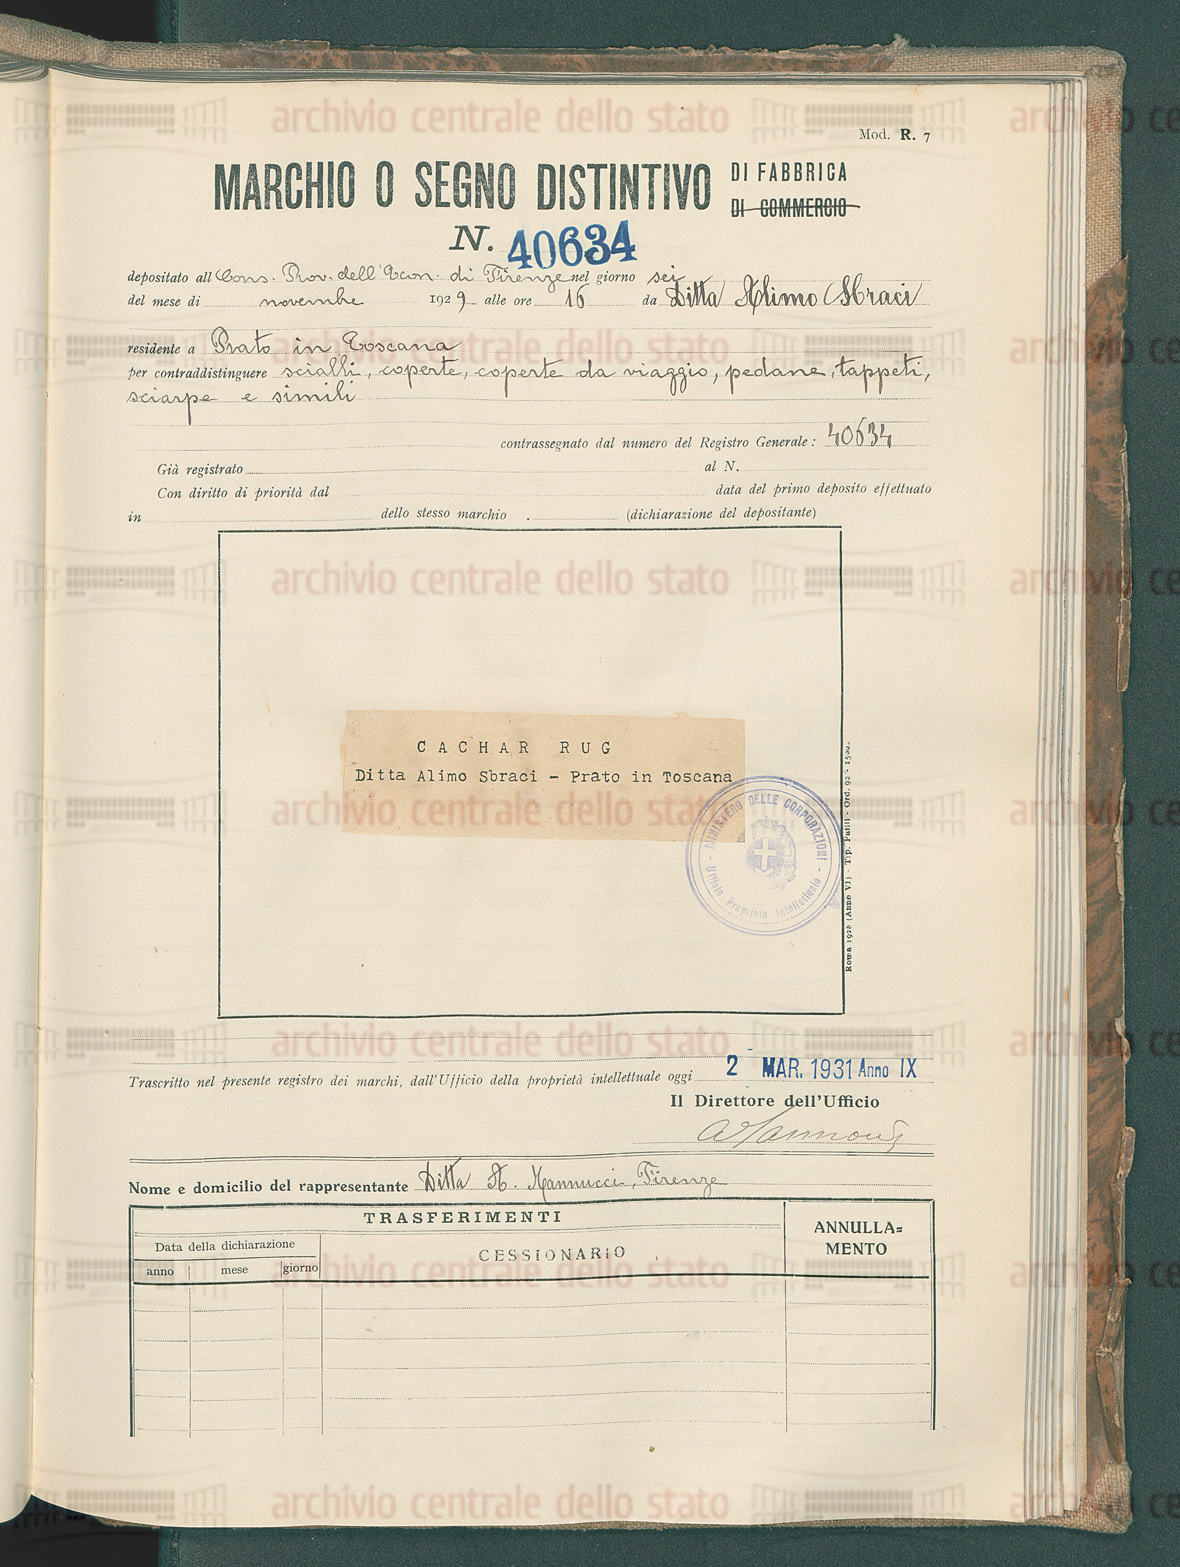 Mod. R. 7
MARCHIO O SEGNO DISTINTIVO DI FABBRICA
DI COMMERCIO
N. 40634
depositato all Cons. Prov. dell'Econ. di Firenze nel giorno sei
del mese di novembre 1929 alle ore 16 da Ditta Alimo Sbraci
residente a Prato in Toscana
per contraddistinguere scialli, coperte, coperte da viaggio, pedane, tappeti,
sciarpe e simili
contrassegnato dal numero del Registro Generale: 40634
Già registrato al N.
Con diritto di priorità dal data del primo deposito effettuato
in dello stesso marchio (dichiarazione del depositante)
CACHAR RUG
Ditta Alimo Sbraci - Prato in Toscana
MINISTERO DELLE CORPORAZIONI
Ufficio Proprietà Intellettuale
Roma 1928 (Anno VI) - Tip. - Ord. 92 -
Trascritto nel presente registro dei marchi, dall'Ufficio della proprietà intellettuale oggi 2 MAR. 1931 Anno IX
Il Direttore dell'Ufficio
Nome e domicilio del rappresentante Ditta A. Mannucci, Firenze
TRASFERIMENTI
ANNULLA=
MENTO
Data della dichiarazione
CESSIONARIO
anno mese giorno
archivio centrale dello stato